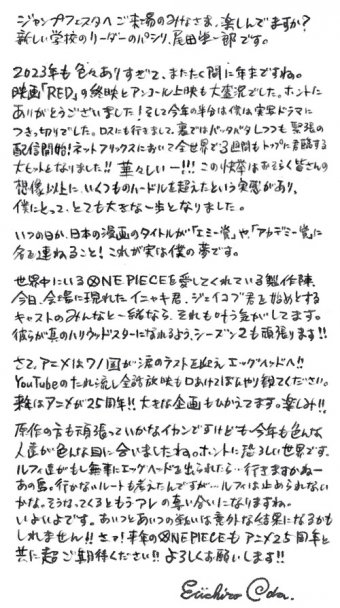 ジャンプフェスタへご来場のみなさま、楽しんでますか?
新しい学校のリーダーのパシリ、尾田栄一郎です。
2023年も色々ありすぎて、またたく間に年末ですね。
映画「RED」の終映とアンコール上映も大盛況でした。ホントに
ありがとうございました!そして今年の半分は僕は実写ドラマに
つきっ切りでした。ロスにも行きまして、裏ではバッタバタしつつも緊張の
配信開始!ネットフリックスにおいて全世界で3週間もトップに君臨する
大ヒットとなりました!!華々しいー!!!この快挙はおそらく皆さんの
想像以上に、いくつものハードルを超えたという実感があり、
僕にとって、とても大きな一歩となりました。
いつの日か、日本の漫画のタイトルが「エミー賞」や、「アカデミー賞」に
名を連ねること!これが実は僕の夢です。
世界中にいるONE PIECEを愛してくれている製作陣、
今日、会場に現れたイニャキ君、ジェイコブ君を始めとする
キャストのみんなと一緒なら、それも叶う気がしてます。
彼らが真のハリウッドスターになれるよう、シーズン2も頑張ります!!
さて、アニメはワノ国が涙のラストを迎え、エッグヘッドへ!!
YouTubeのたれ流し全話放映も口あけてぼんやり観てください。
来年はアニメが25周年!!大きな企画もひかえてます。楽しみ!!
原作の方も頑張っていかなイカンですけども、今年も色んな
人達が色んな目に合いましたね。ホントに恐ろしい世界です。
ルフィ達がもし無事にエッグヘッドを出られたら…行きますかねー
あの島。行かないルートも考えたんですが…ルフィは止められない
かな。そうなってくるともうアレの奪い合いになりますね。
いよいよです。あいつとあいつの戦いは意外な結果になるかも
しれません!!さァ!来年のONE PIECEも アニメ25周年と
共に超ご期待ください!!よろしくお願いします!!
Eiichiro Oda.